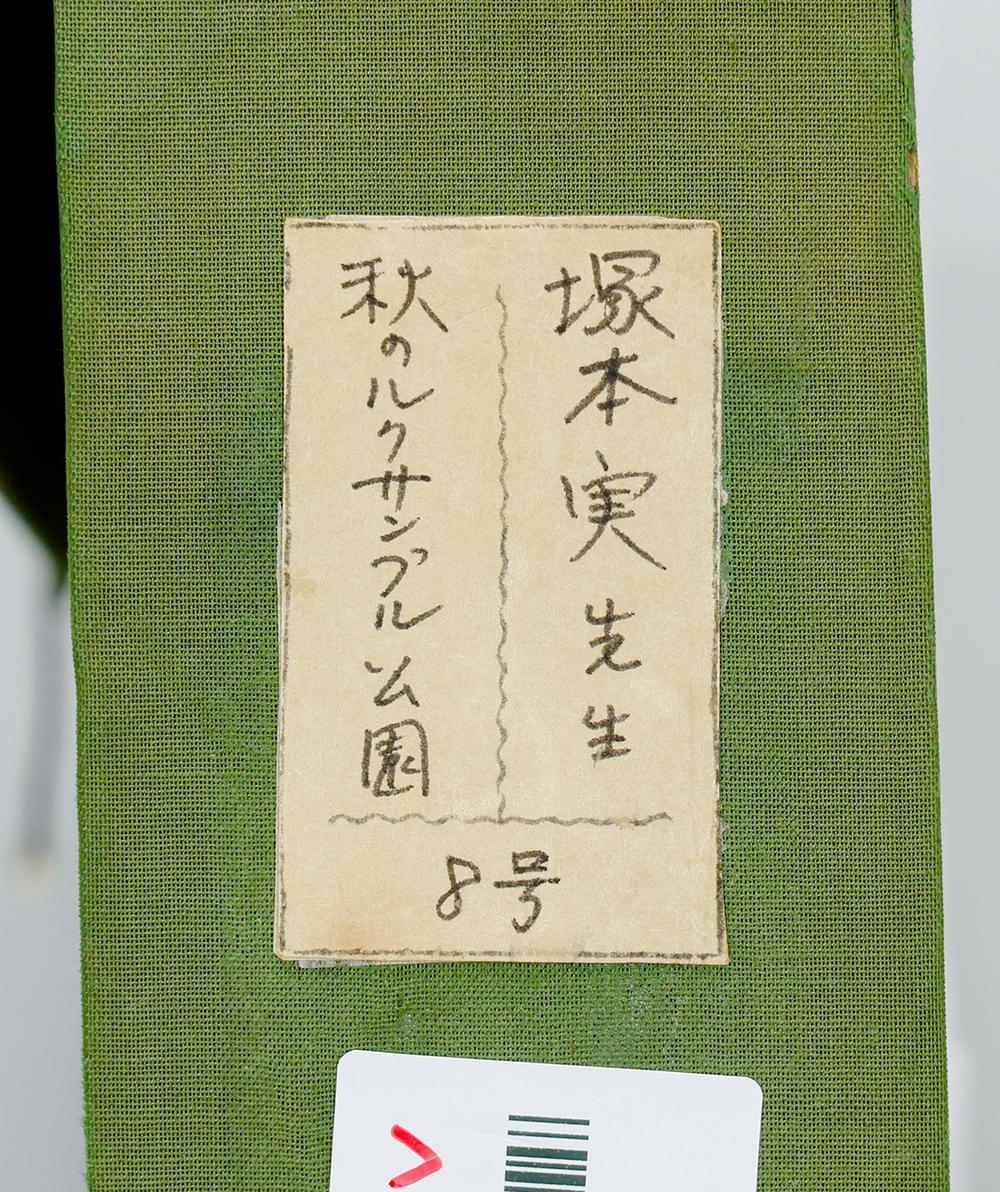 塚本実先生
秋のルクサンブル公園
8号